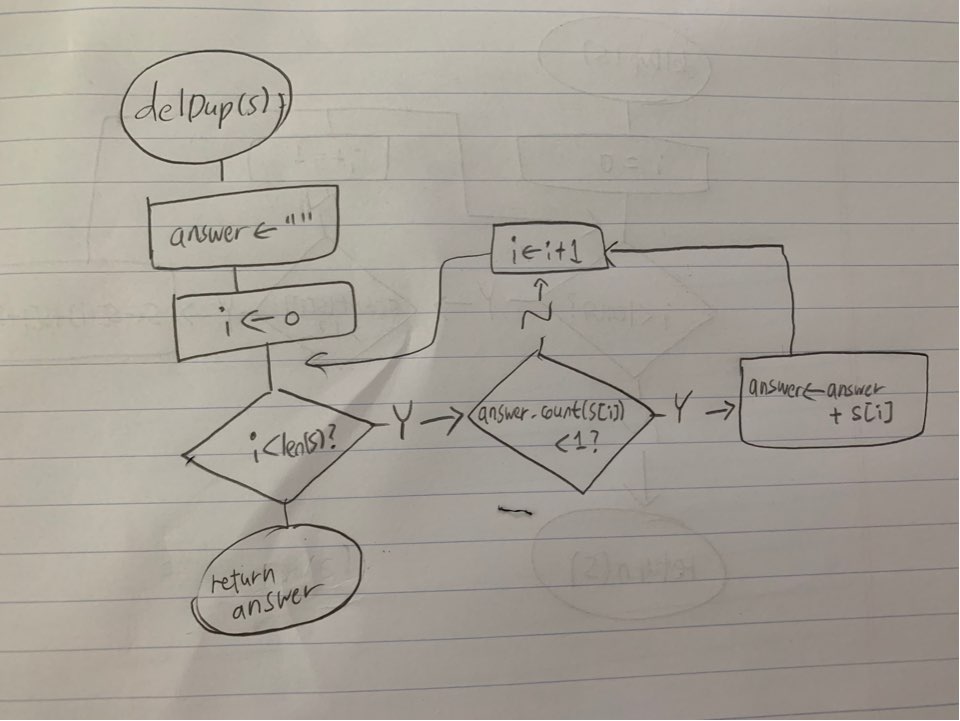 delDup(s)
answer ← ""
i ← 0
i ← i+1
i < len(s)?
Y →
answer.count(s[i])
<1?
N
Y →
answer ← answer
+ s[i]
return
answer